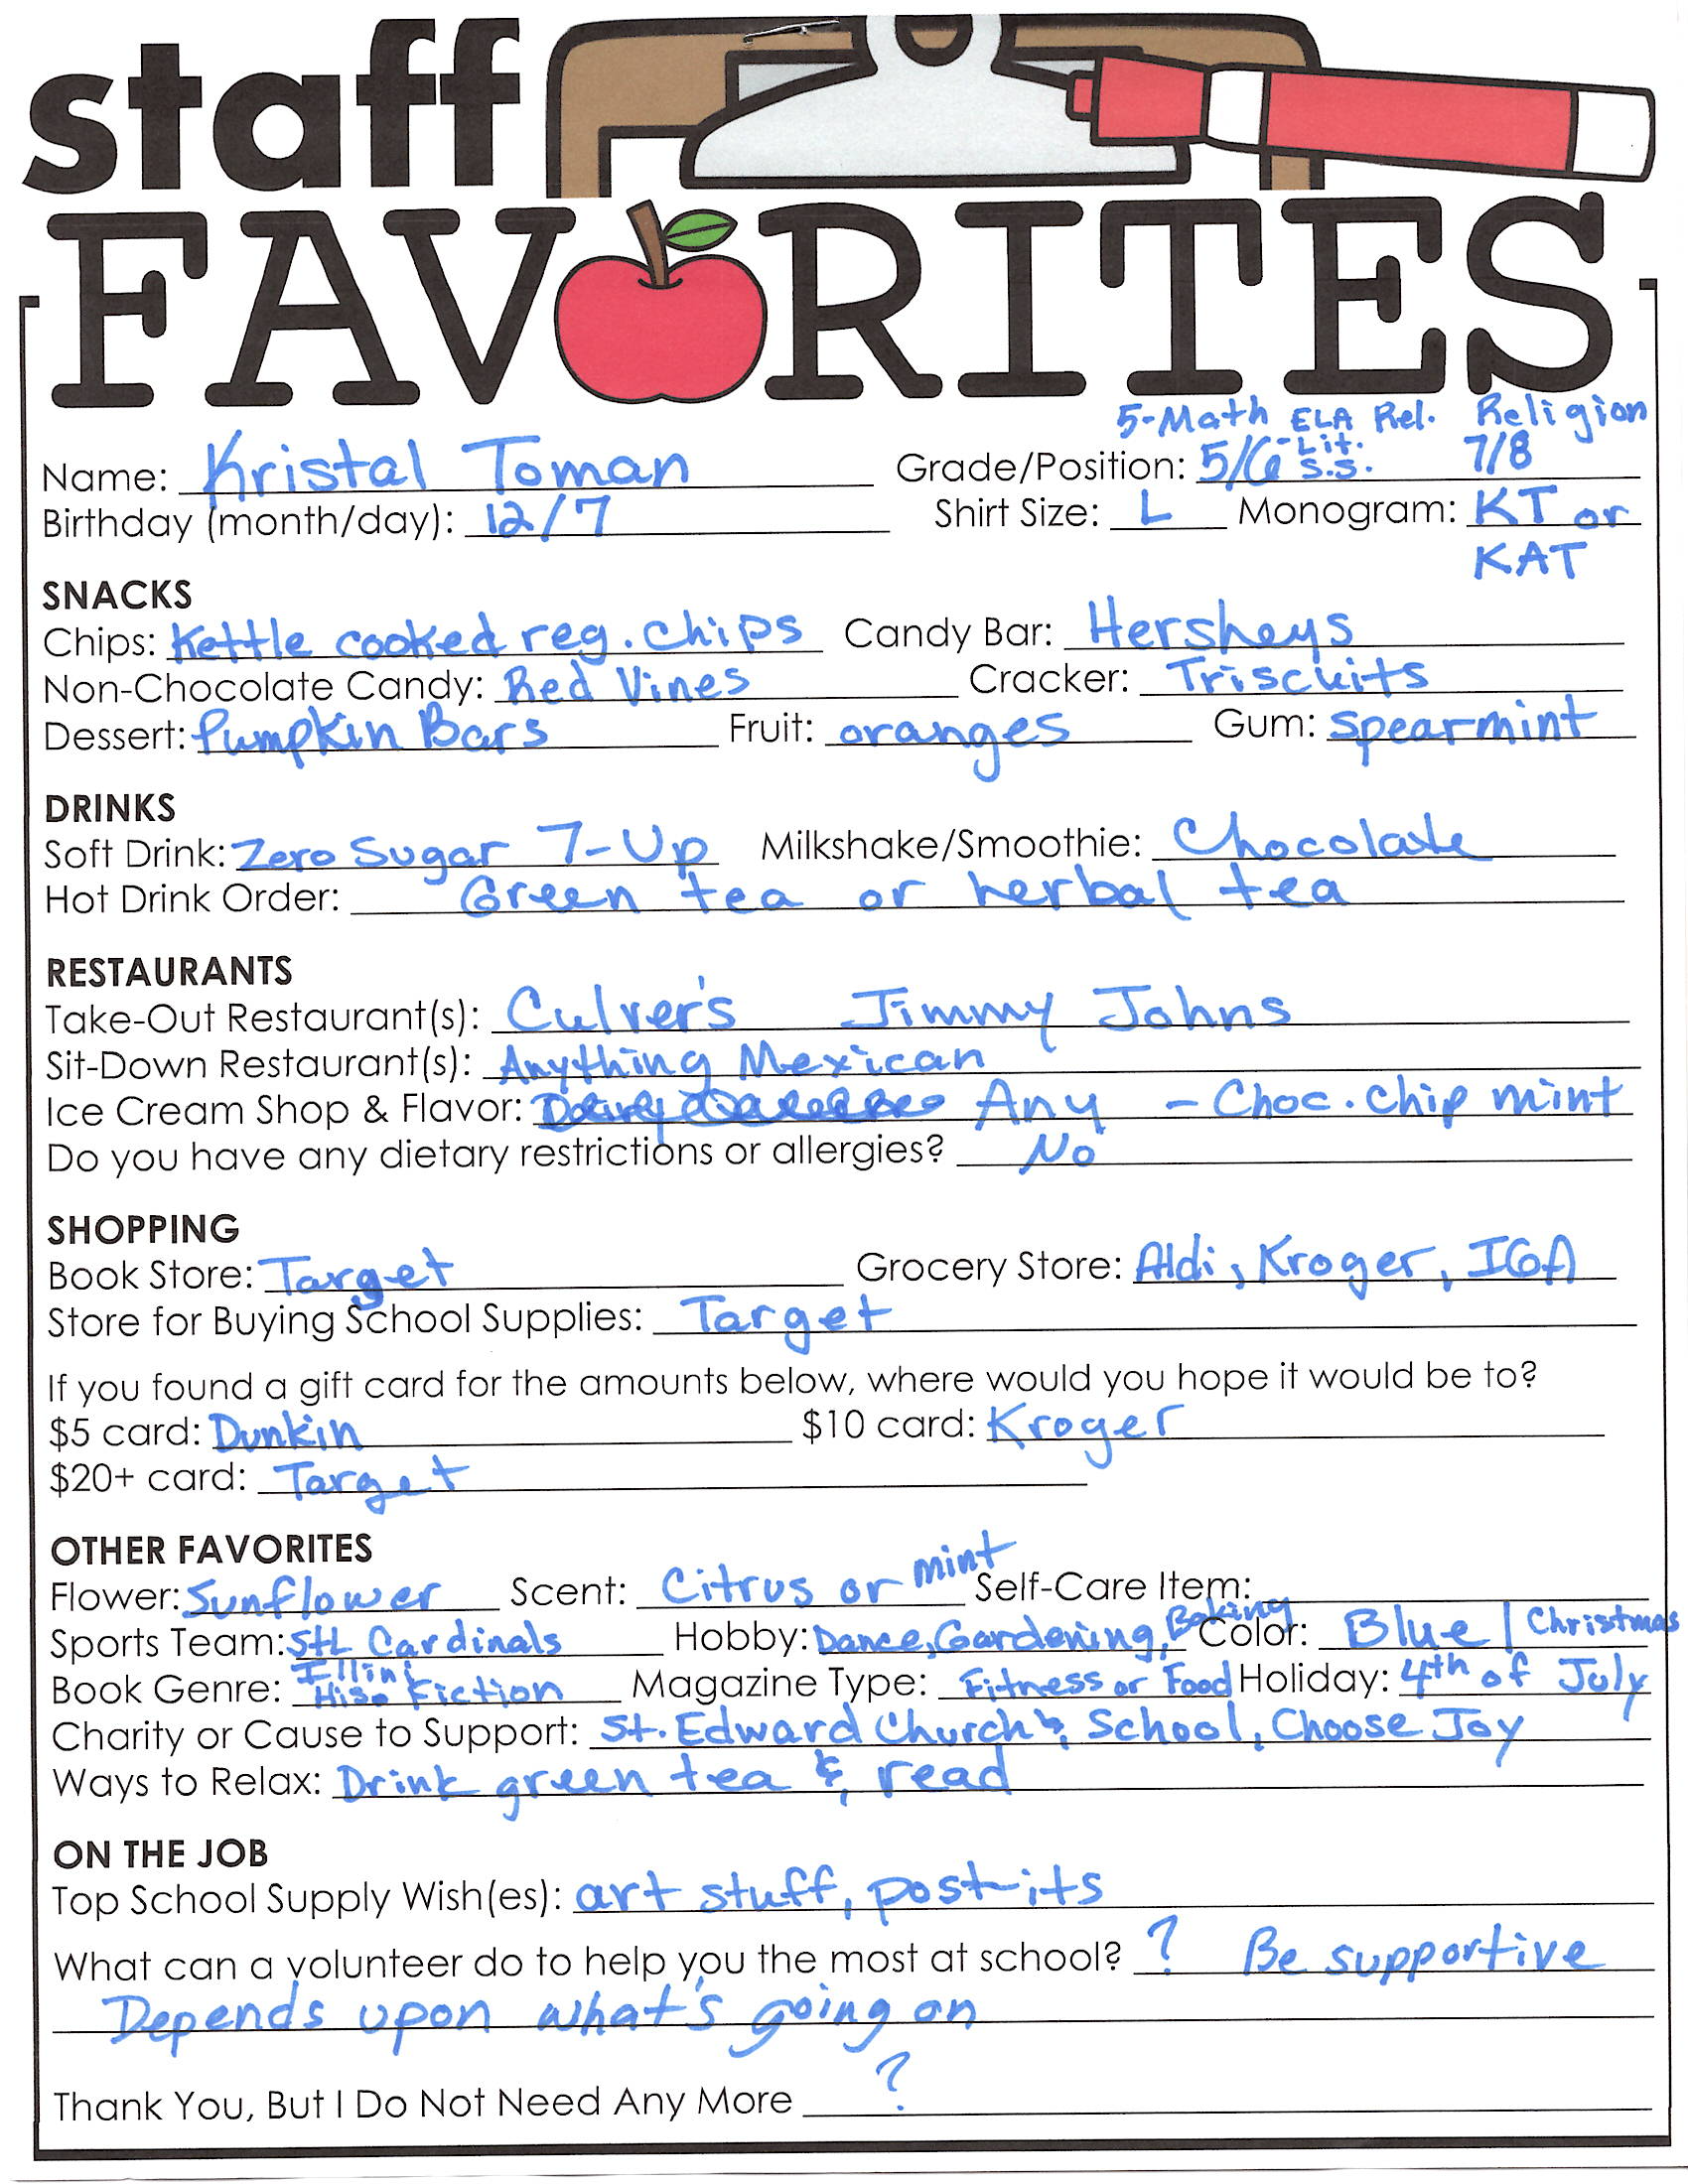 staff
FAVORITES
5-Math ELA Rel. Religion
Name: Kristal Toman Grade/Position: 5/6 - Lit. S.S. 7/8
Birthday (month/day): 12/7 Shirt Size: L Monogram: KT or
KAT
SNACKS
Chips: Kettle cooked reg. chips Candy Bar: Hersheys
Non-Chocolate Candy: Red Vines Cracker: Triscuits
Dessert: Pumpkin Bars Fruit: oranges Gum: spearmint
DRINKS
Soft Drink: Zero Sugar 7-Up Milkshake/Smoothie: Chocolate
Hot Drink Order: Green tea or herbal tea
RESTAURANTS
Take-Out Restaurant(s): Culver's Jimmy Johns
Sit-Down Restaurant(s): Anything Mexican
Ice Cream Shop & Flavor: Any - Choc. chip mint
Do you have any dietary restrictions or allergies? No
SHOPPING
Book Store: Target Grocery Store: Aldi, Kroger, IGA
Store for Buying School Supplies: Target
If you found a gift card for the amounts below, where would you hope it would be to?
$5 card: Dunkin $10 card: Kroger
$20+ card: Target
OTHER FAVORITES
Flower: Sunflower Scent: Citrus or mint Self-Care Item:
Sports Team: StL Cardinals Hobby: Dance, Gardening, Baking Color: Blue | Christmas
Illini
Book Genre: His. Fiction Magazine Type: Fitness or Food Holiday: 4th of July
Charity or Cause to Support: St. Edward Church & School, Choose Joy
Ways to Relax: Drink green tea & read
ON THE JOB
Top School Supply Wish(es): art stuff, post-its
What can a volunteer do to help you the most at school? ? Be supportive
Depends upon what's going on
Thank You, But I Do Not Need Any More ?